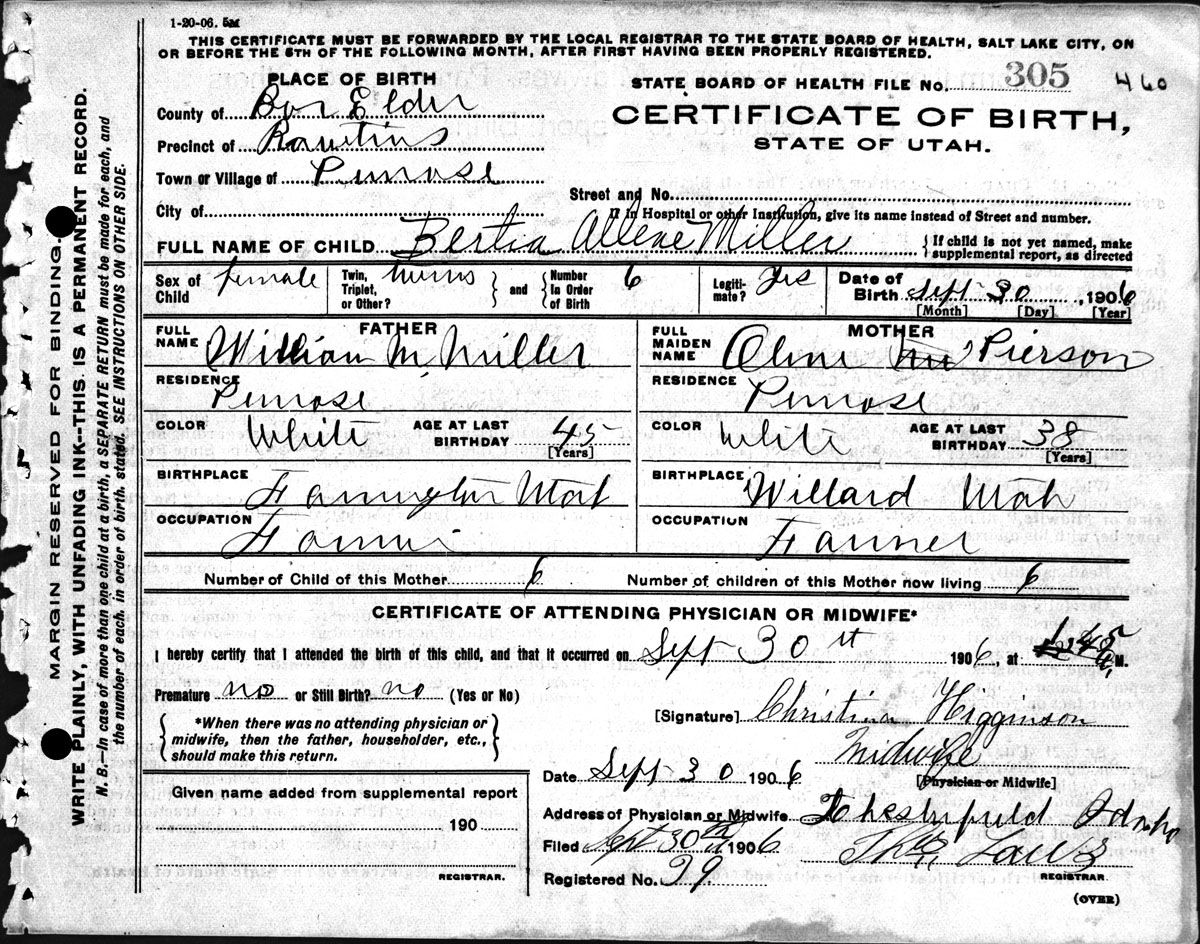 1-20-06. 5M
THIS CERTIFICATE MUST BE FORWARDED BY THE LOCAL REGISTRAR TO THE STATE BOARD OF HEALTH, SALT LAKE CITY, ON
OR BEFORE THE 5TH OF THE FOLLOWING MONTH, AFTER FIRST HAVING BEEN PROPERLY REGISTERED.
PLACE OF BIRTH
STATE BOARD OF HEALTH FILE No. 305 460
County of Box Elder
CERTIFICATE OF BIRTH,
STATE OF UTAH.
Precinct of
Town or Village of Penrose
Street and No.
City of
If in Hospital or other Institution, give its name instead of Street and number.
FULL NAME OF CHILD Bertia Allene Miller
{ If child is not yet named, make supplemental report, as directed
Sex of Child female
Twin, Triplet, or Other? twins } and { Number in Order of Birth 6
Legitimate? Yes
Date of Birth Sept 30, 1906
[Month] [Day] [Year]
FATHER
FULL NAME William M. Miller
RESIDENCE Penrose
COLOR White AGE AT LAST BIRTHDAY 45 [Years]
BIRTHPLACE Farmington Utah
OCCUPATION Farmer
MOTHER
FULL MAIDEN NAME Oline Pierson
RESIDENCE Penrose
COLOR White AGE AT LAST BIRTHDAY 38 [Years]
BIRTHPLACE Willard Utah
OCCUPATION Farmer
Number of Child of this Mother 6 Number of children of this Mother now living 6
CERTIFICATE OF ATTENDING PHYSICIAN OR MIDWIFE*
I hereby certify that I attended the birth of this child, and that it occurred on Sept 30 1906, at M.
Premature no or Still Birth? no (Yes or No)
{ *When there was no attending physician or midwife, then the father, householder, etc., should make this return. }
[Signature] Christina Higginson
Midwife
[Physician or Midwife]
Date Sept 30 1906
Given name added from supplemental report
190
REGISTRAR.
Address of Physician or Midwife Chesterfield Idaho
Filed Sept 30th 1906
Thos. Laws
REGISTRAR.
Registered No. 29
(OVER)
MARGIN RESERVED FOR BINDING.
WRITE PLAINLY, WITH UNFADING INK—THIS IS A PERMANENT RECORD.
N. B.—In case of more than one child at a birth, a SEPARATE RETURN must be made for each, and
the number of each, in order of birth, stated. SEE INSTRUCTIONS ON OTHER SIDE.